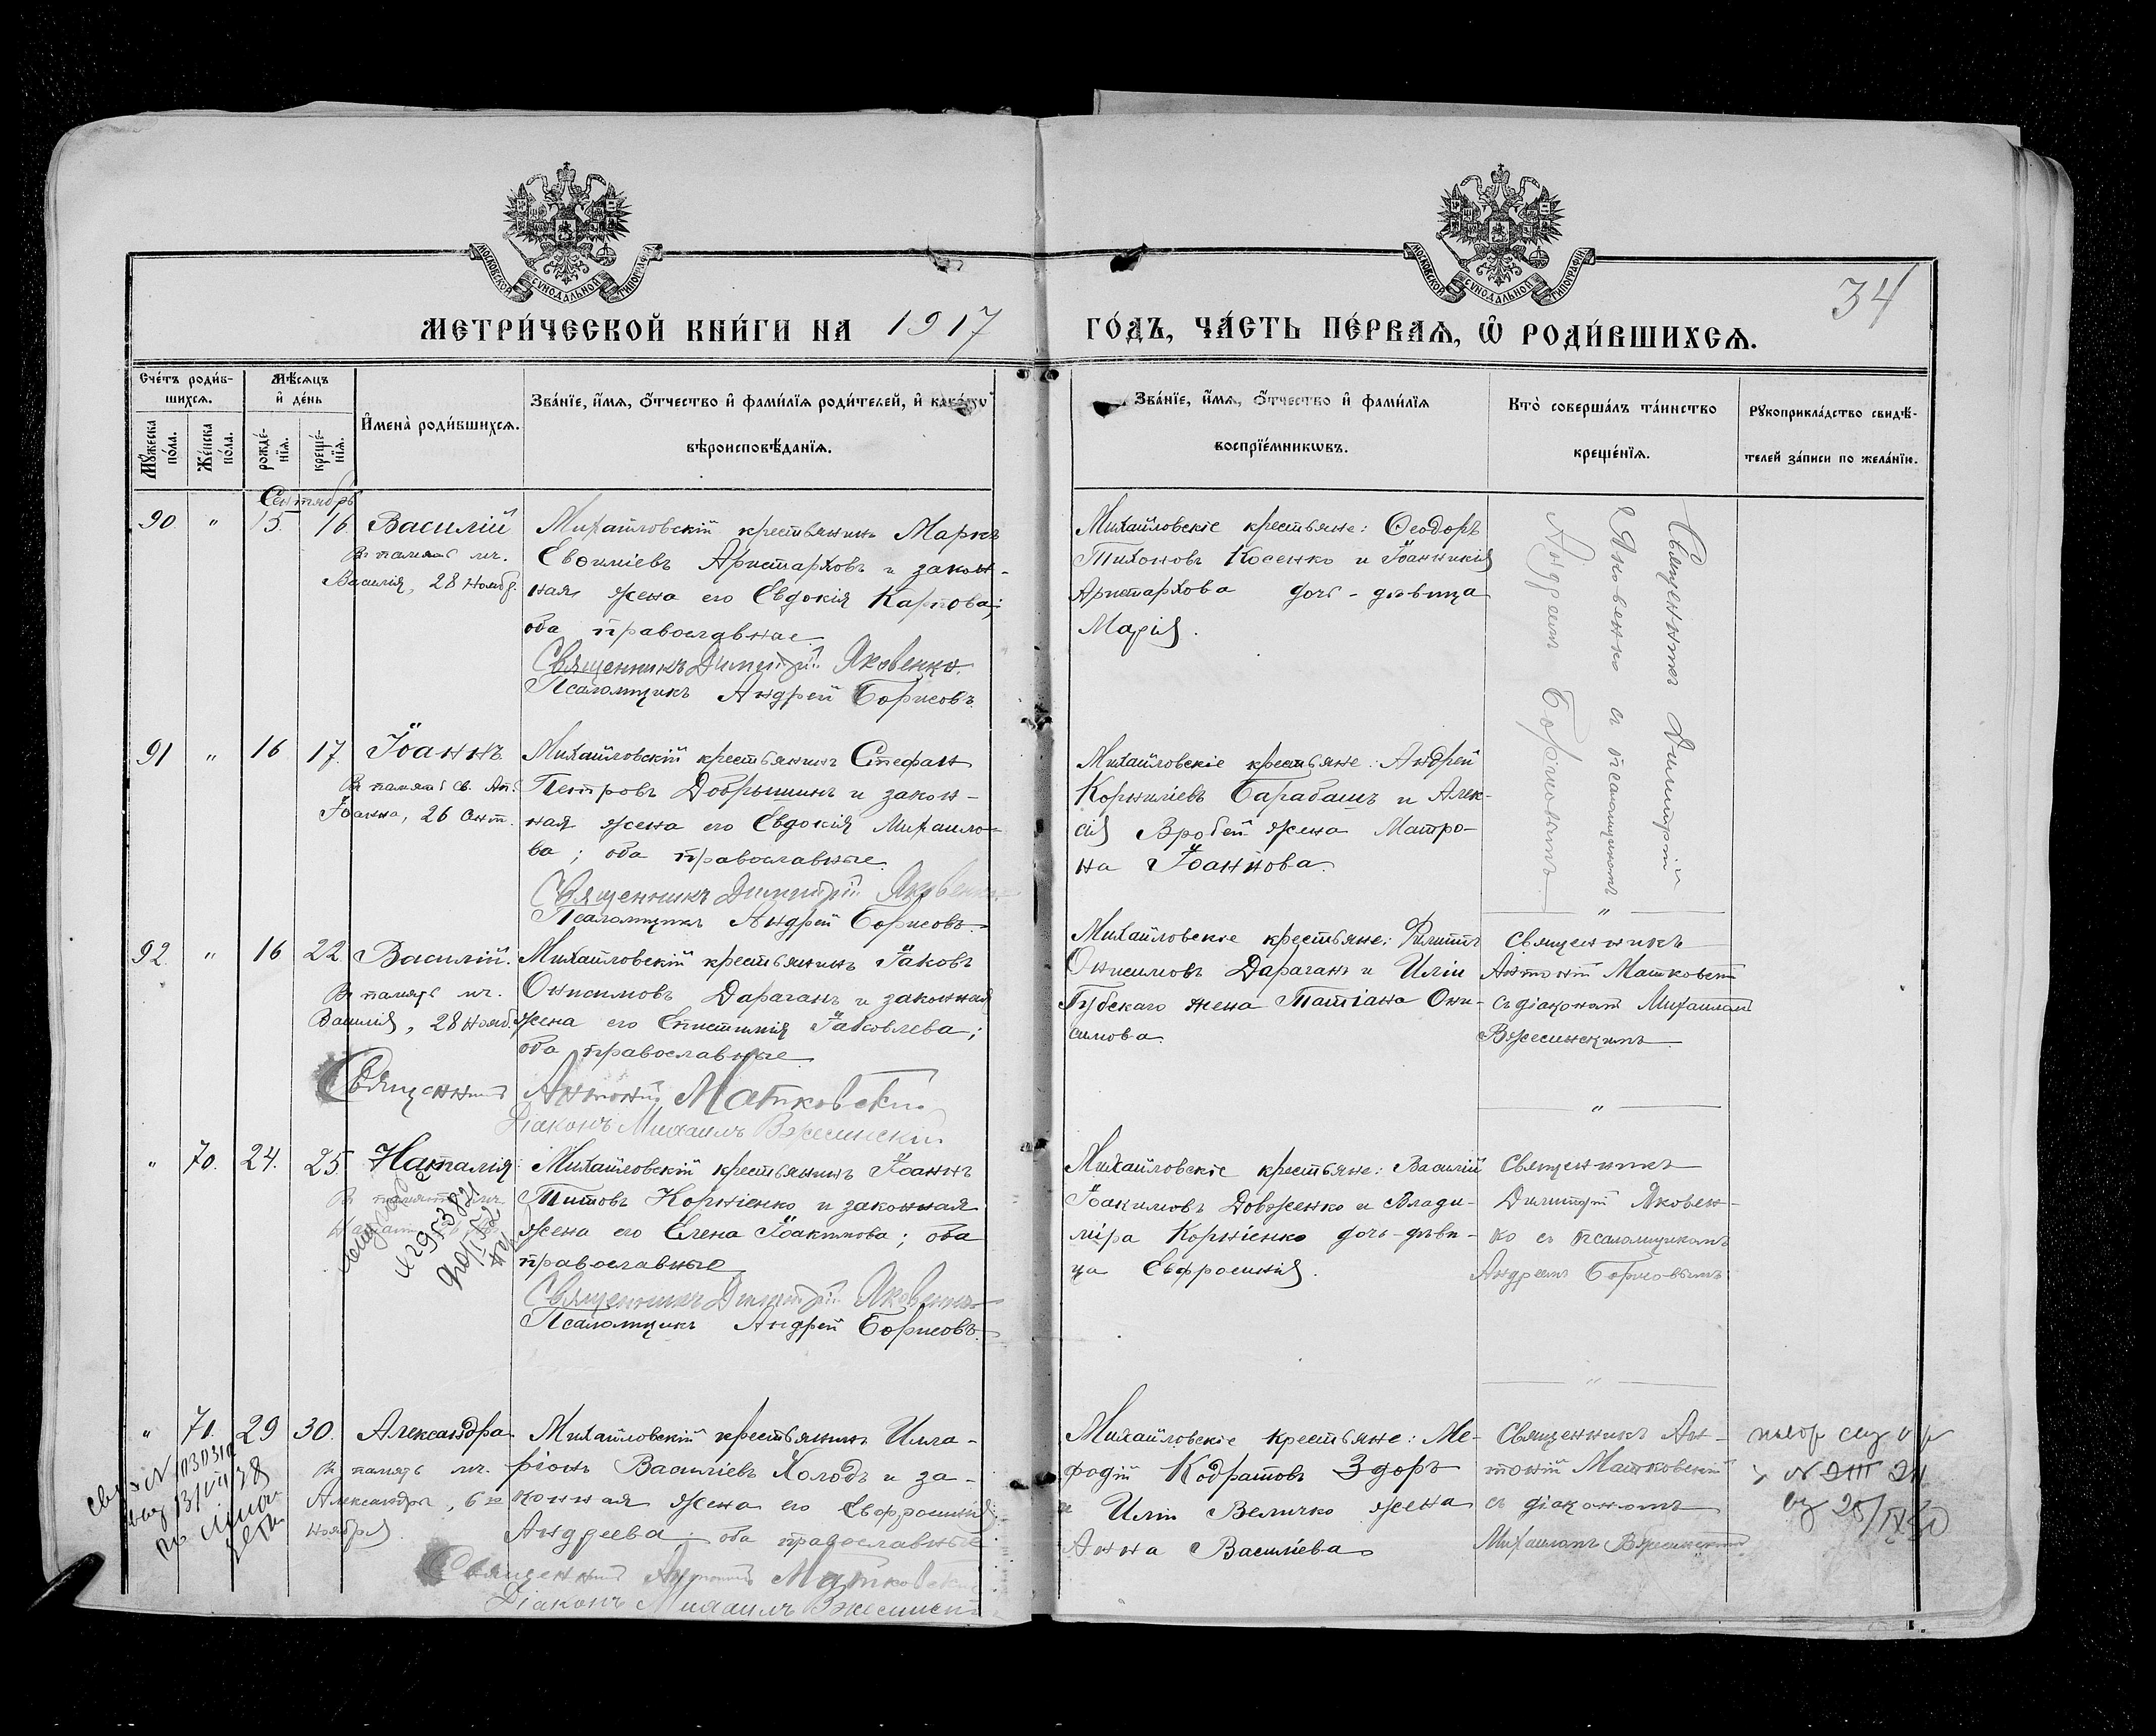 МОСКОВСКОЙ СУНОДАЛЬНОЙ ТИПОГРАФІИ
МОСКОВСКОЙ СУНОДАЛЬНОЙ ТИПОГРАФІИ
34
МЕТРИ́ЧЕСКОЙ КНИ́ГИ НА 1917
ГО́ДЪ, ЧА́СТЬ ПЕ́РВАѦ, Ѡ РОДИ́ВШИХСѦ.
Сче́тъ роди́в-
шихсѧ.
Мꙋ́жеска по́ла.
Же́нска по́ла.
Мѣ́сѧцъ
и҆ де́нь
рожде́-
нїѧ.
креще́-
нїѧ.
И҆мена̀ роди́вшихсѧ.
Зва́нїе, и҆́мѧ, ѻ҆́тчество и҆ фами́лїѧ роди́телей, и҆ како́гѡ
вѣроисповѣ́данїѧ.
Зва́нїе, и҆́мѧ, ѻ҆́тчество и҆ фами́лїѧ
воспрїе́мникѡвъ.
Кто̀ соверша́лъ та́инство
креще́нїѧ.
Рꙋкоприкла́дство свидѣ́-
телей за́писи по жела́нїю.
Сентябрь
90 " 15. 16. Василій
Въ память мч.
Василія, 28 нояб.
Михайловскій крестьянинъ Маркъ
Евѳиміевъ Аристарховъ и закон-
ная жена его Евдокія Карпова;
оба православные
Священникъ Димитрій Яковенко.
Псаломщикъ Андрей Борисовъ.
Михайловскіе крестьяне: Ѳеодоръ
Тихоновъ Косенко и Іоанникія
Аристархова дочь-дѣвица
Марія.
Священникъ Димитрій
Яковенко съ псаломщикомъ
Андреем Борисовымъ
91 " 16 17. Іоаннъ
Въ память св. Ап.
Іоанна, 26 сент.
Михайловскій крестьянинъ Стефан
Петровъ Добрышинъ и закон-
ная жена его Евдокія Михаило-
ва; оба православные
Священникъ Димитрій Яковенко
Псаломщикъ Андрей Борисовъ.
Михайловскіе крестьяне: Андрей
Корниліевъ Барабашъ и Алек-
сія Вробей жена Матро-
на Іоаннова.
92. " 16 22 Василій.
Въ память мч.
Василія, 28 нояб.
Михайловскій крестьянинъ Іаковъ
Онисимовъ Дараганъ и законная
жена его Епистимія Іаковлева;
оба православные
Священникъ Антоній Матковскій
Діаконъ Михаилъ Вжесинскій
Михайловскіе крестьяне: Филиппъ
Онисимовъ Дараганъ и Иліи
Губскаго жена Татіана Они-
симова.
Священникъ
Антоній Матковскій
съ діакономъ Михаиломъ
Вжесинскимъ
" 70. 24. 25 Наталія
Въ память мч.
№ 295382
Михайловскій крестьянинъ Іоаннъ
Титовъ Корніенко и законная
жена его Елена Іоакимова; оба
православные
Священникъ Димитрій Яковенко
Псаломщикъ Андрей Борисовъ.
Михайловскіе крестьяне: Василій
Іоакимовъ Довженко и Влади-
міра Корніенко дочь-дѣви-
ца Евфросинія.
Священникъ
Димитрій Яковен-
ко съ псаломщикомъ
Андреемъ Борисовымъ
" 71. 29 30. Александра
Въ память мч.
Александры, 6го
ноября.
Михайловскій крестьянинъ Ила-
ріонъ Василіевъ Холодъ и за-
конная жена его Евфросинія
Андреева; оба православные
Священникъ Антоній Матковскій
Діаконъ Михаилъ Вжесинскій
Михайловскіе крестьяне: Ме-
фодій Кодратовъ Здоръ
и Иліи Величко жена
Анна Василіева
Священникъ Ан-
тоній Матковскій
съ діакономъ
Михаиломъ Вжесинскимъ